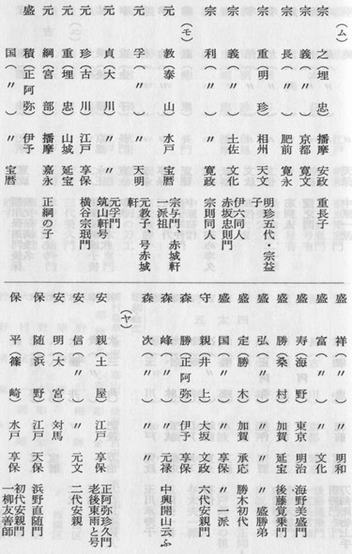 (ム)
宗之(埋忠) 播摩 安政 重長子
宗義(〃) 京都 寛文
宗長(〃) 肥前 寛永
宗重(明珍) 相州 天文 明珍五代・宗益子
宗義(〃) 土佐 文化 伊六同人
宗利(〃) 〃 寛政 赤坂忠則門 宗則同人
(モ)
元教(泰山) 水戸 宝暦 宗与門、赤城軒一派祖
元孚(〃) 〃 天明 元教子、号赤城軒
元貞(大川) 〃 〃 元孚門 筑山軒号
元珍(古川) 江戸 享保 横谷宗珉門
元重(埋忠) 山城 延宝
元綱(宮部) 播摩 嘉永 正綱の子
盛積(正阿弥) 伊予 〃
盛国(〃) 〃 宝暦
盛祥(〃) 〃 明和
盛富(〃) 〃 文化
盛寿(海野) 東京 明治 海野美盛門
盛勝(桑村) 加賀 延宝 後藤覚乗門
盛弘(〃) 〃 〃 盛勝弟
盛定(勝木) 加賀 承応 勝木初代
盛国(〃) 〃 享保 〃一派
守親(井上) 大坂 文政 六代安親門
森勝(正阿弥) 伊予 享保
森峰(〃) 〃 元禄 中興開山云ふ
森次(〃) 〃 〃
(ヤ)
安親(土屋) 江戸 享保 正阿弥珍久門 老後東雨と号
安信(〃) 〃 元文 二代安親
安明(大宮) 対馬
保随(浜野) 江戸 天保 浜野直随門
保平(篠崎) 水戸 享保 初代安親門 一柳友善師